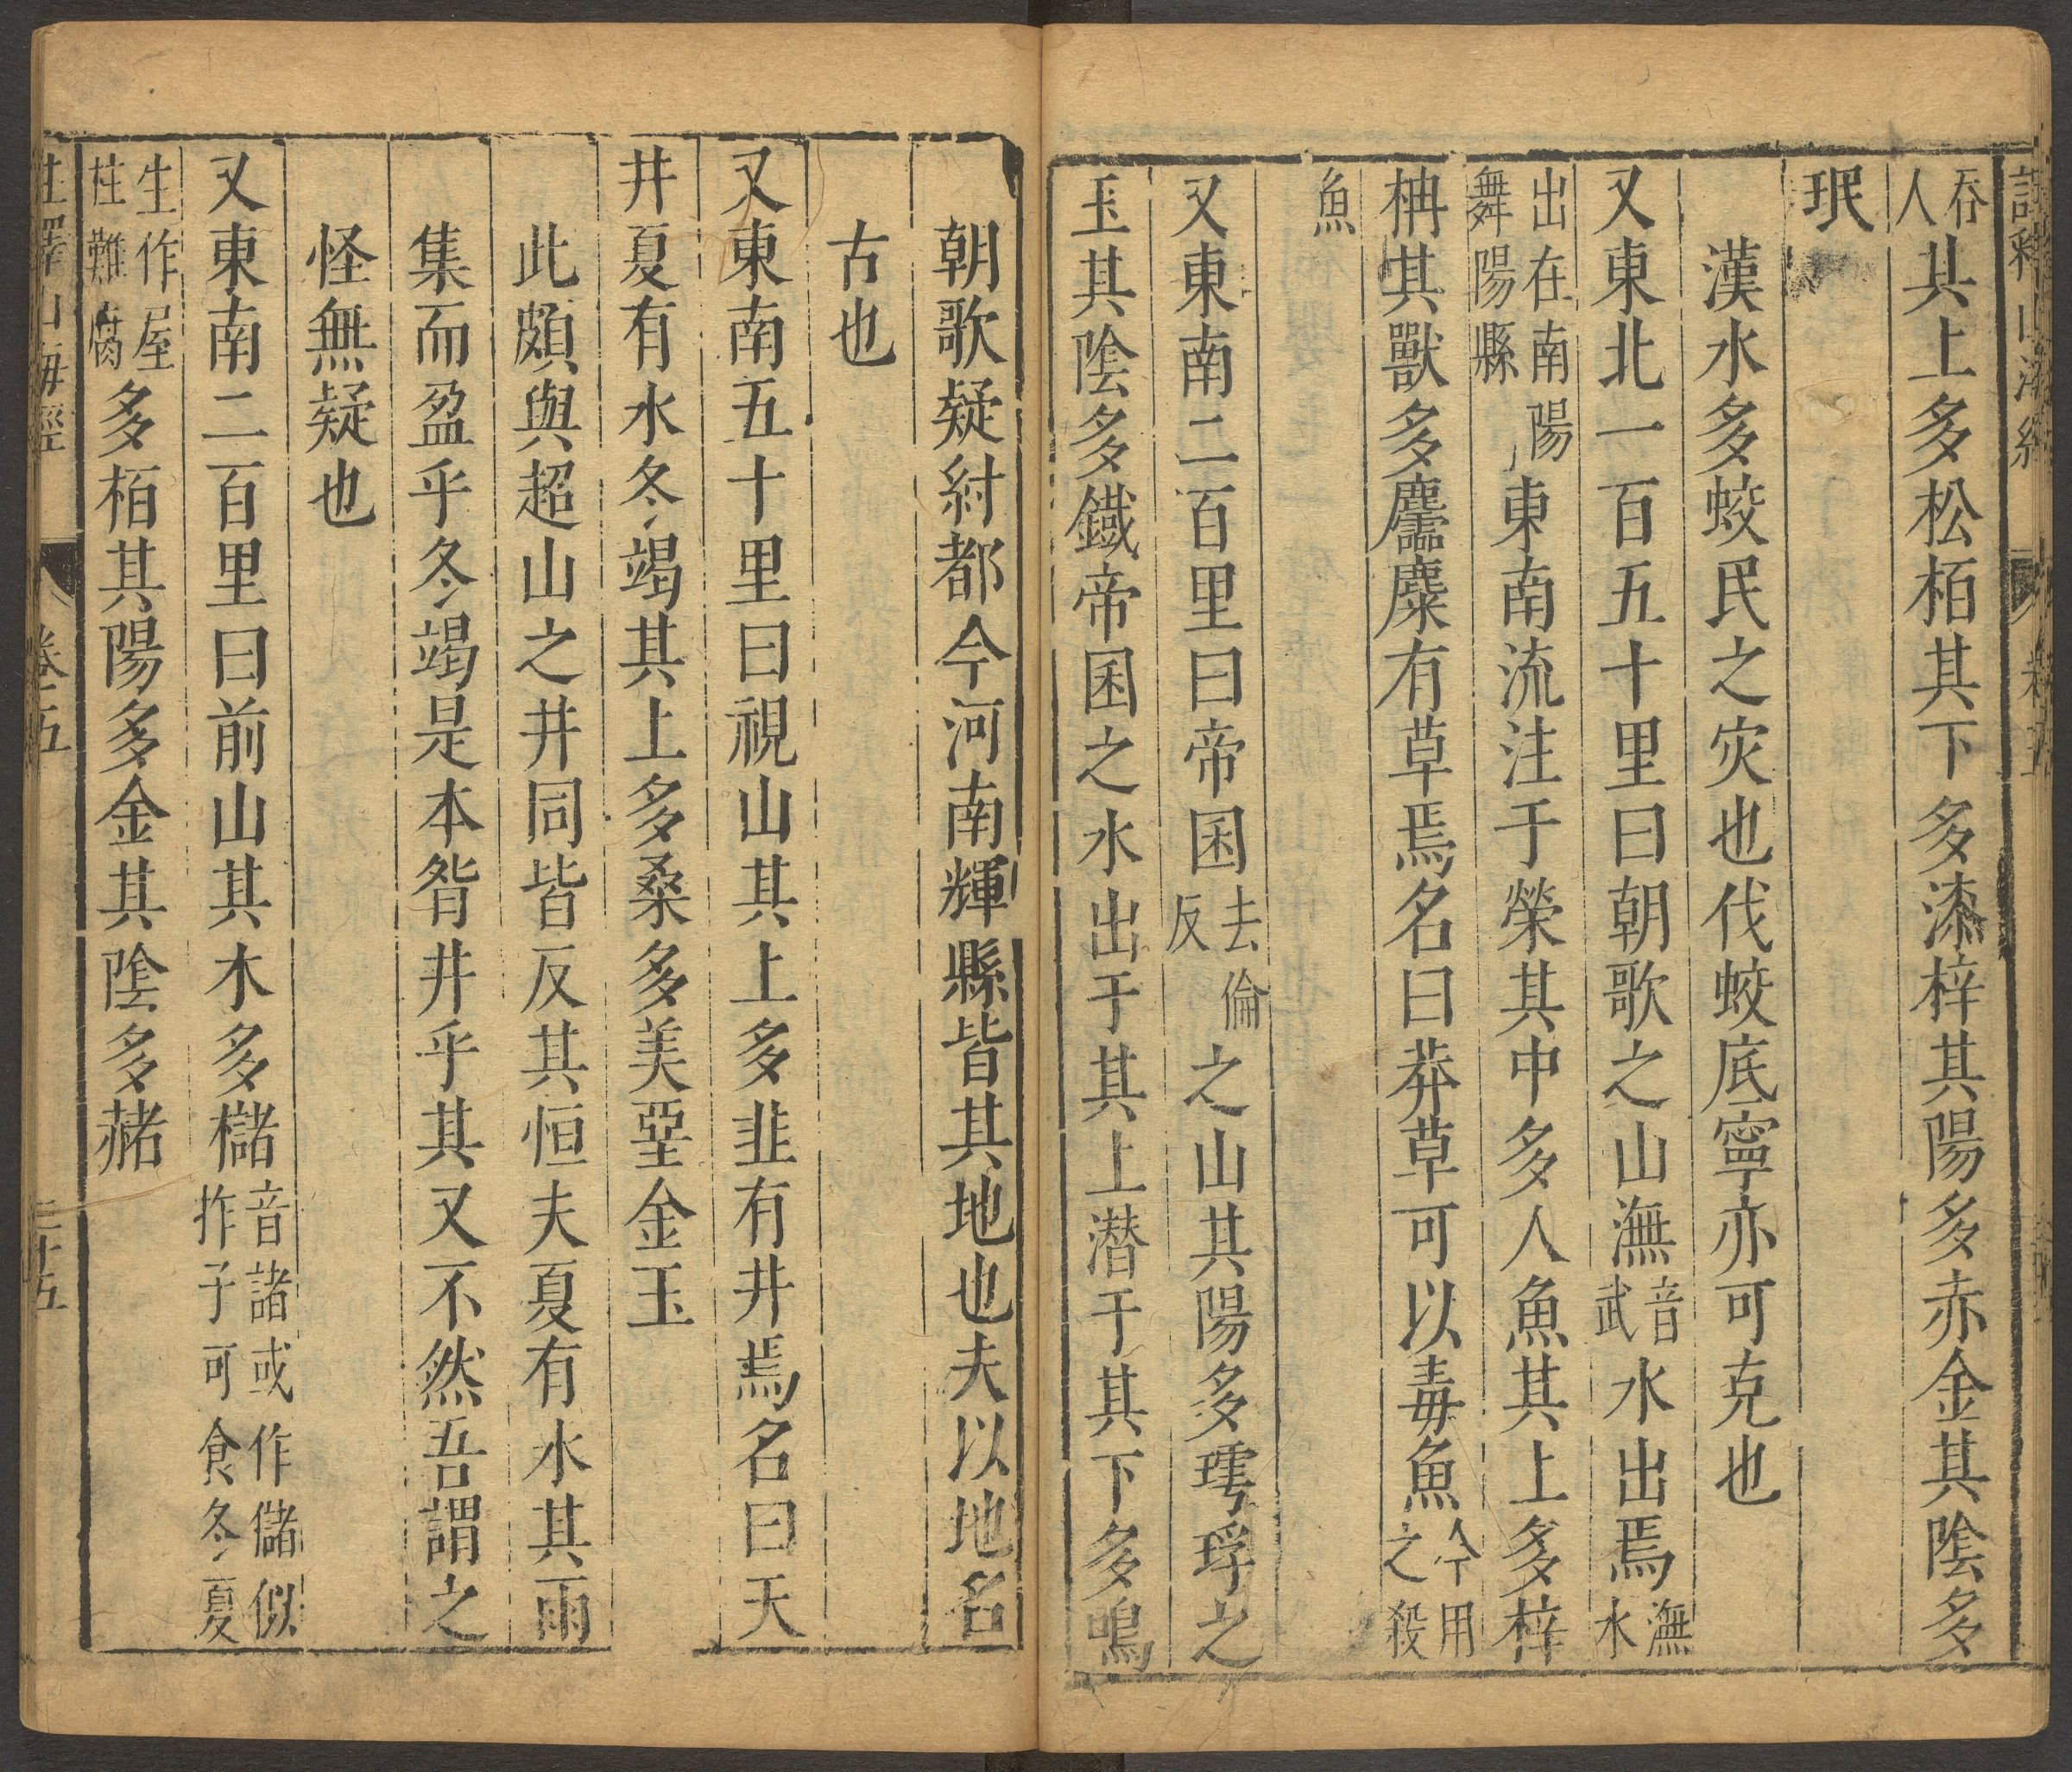 吞人其上多松栢其下多漆梓其陽多赤金其陰多
珉
漢水多蛟民之災也伐蛟底寧亦可克也
又東北一百五十里曰朝歌之山潕音武水出焉潕水
出在南陽舞陽縣東南流注于滎其中多人魚其上多梓
枏其獸多麢麋有草焉名曰莽草可以毒魚今用之殺
魚
又東南二百里曰帝囷去倫反之山其陽多㻬琈之
玉其陰多鐵帝囷之水出于其上潜于其下多鳴
朝歌疑紂都今河南輝縣皆其地也夫以地名
古也
又東南五十里曰視山其上多韭有井焉名曰天
井夏有水冬竭其上多桑多美堊金玉
此頗與超山之井同皆反其恒夫夏有水其雨
集而盈乎冬竭是本眢井乎其又不然吾謂之
怪無疑也
又東南二百里曰前山其木多櫧音諸或作儲似柞子可食冬夏
生作屋柱難腐多栢其陽多金其陰多赭
卷五
三十五